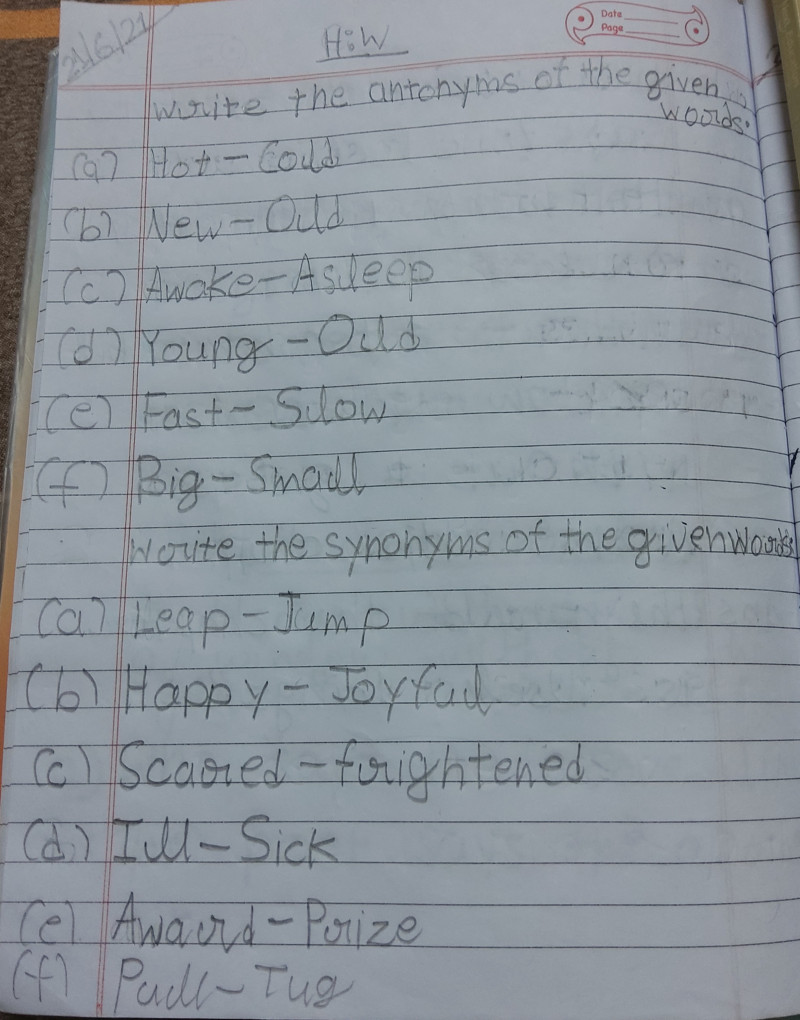 21/6/21
H:W
Date
Page
Write the antonyms of the given
words.
(a) Hot - Cold
(b) New - Old
(c) Awake - Asleep
(d) Young - Old
(e) Fast - Slow
(f) Big - Small
Write the synonyms of the given words
(a) Leap - Jump
(b) Happy - Joyful
(c) Scared - frightened
(d) Ill - Sick
(e) Award - Prize
(f) Pull - Tug